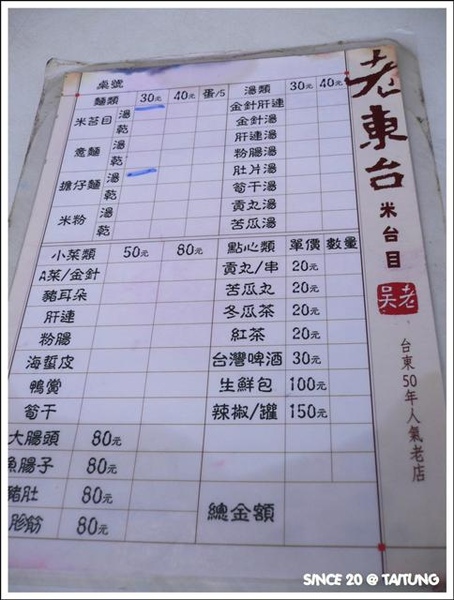 桌號
麵類 30元 40元 蛋/5 湯類 30元 40元
米苔目 湯 乾
意麵 湯 乾
擔仔麵 湯 乾
米粉 湯 乾
金針肝連
金針湯
肝連湯
粉腸湯
肚片湯
筍干湯
貢丸湯
苦瓜湯
小菜類 50元 80元 點心類 單價 數量
A菜/金針 貢丸/串 20元
豬耳朵 苦瓜丸 20元
肝連 冬瓜茶 20元
粉腸 紅茶 20元
海蜇皮 台灣啤酒 30元
鴨賞 生鮮包 100元
筍干 辣椒/罐 150元
大腸頭 80元
魚腸子 80元
豬肚 80元
80元
總金額
老東台
米台目
老吳
台東50年人氣老店
SINCE 20 @ TAITUNG